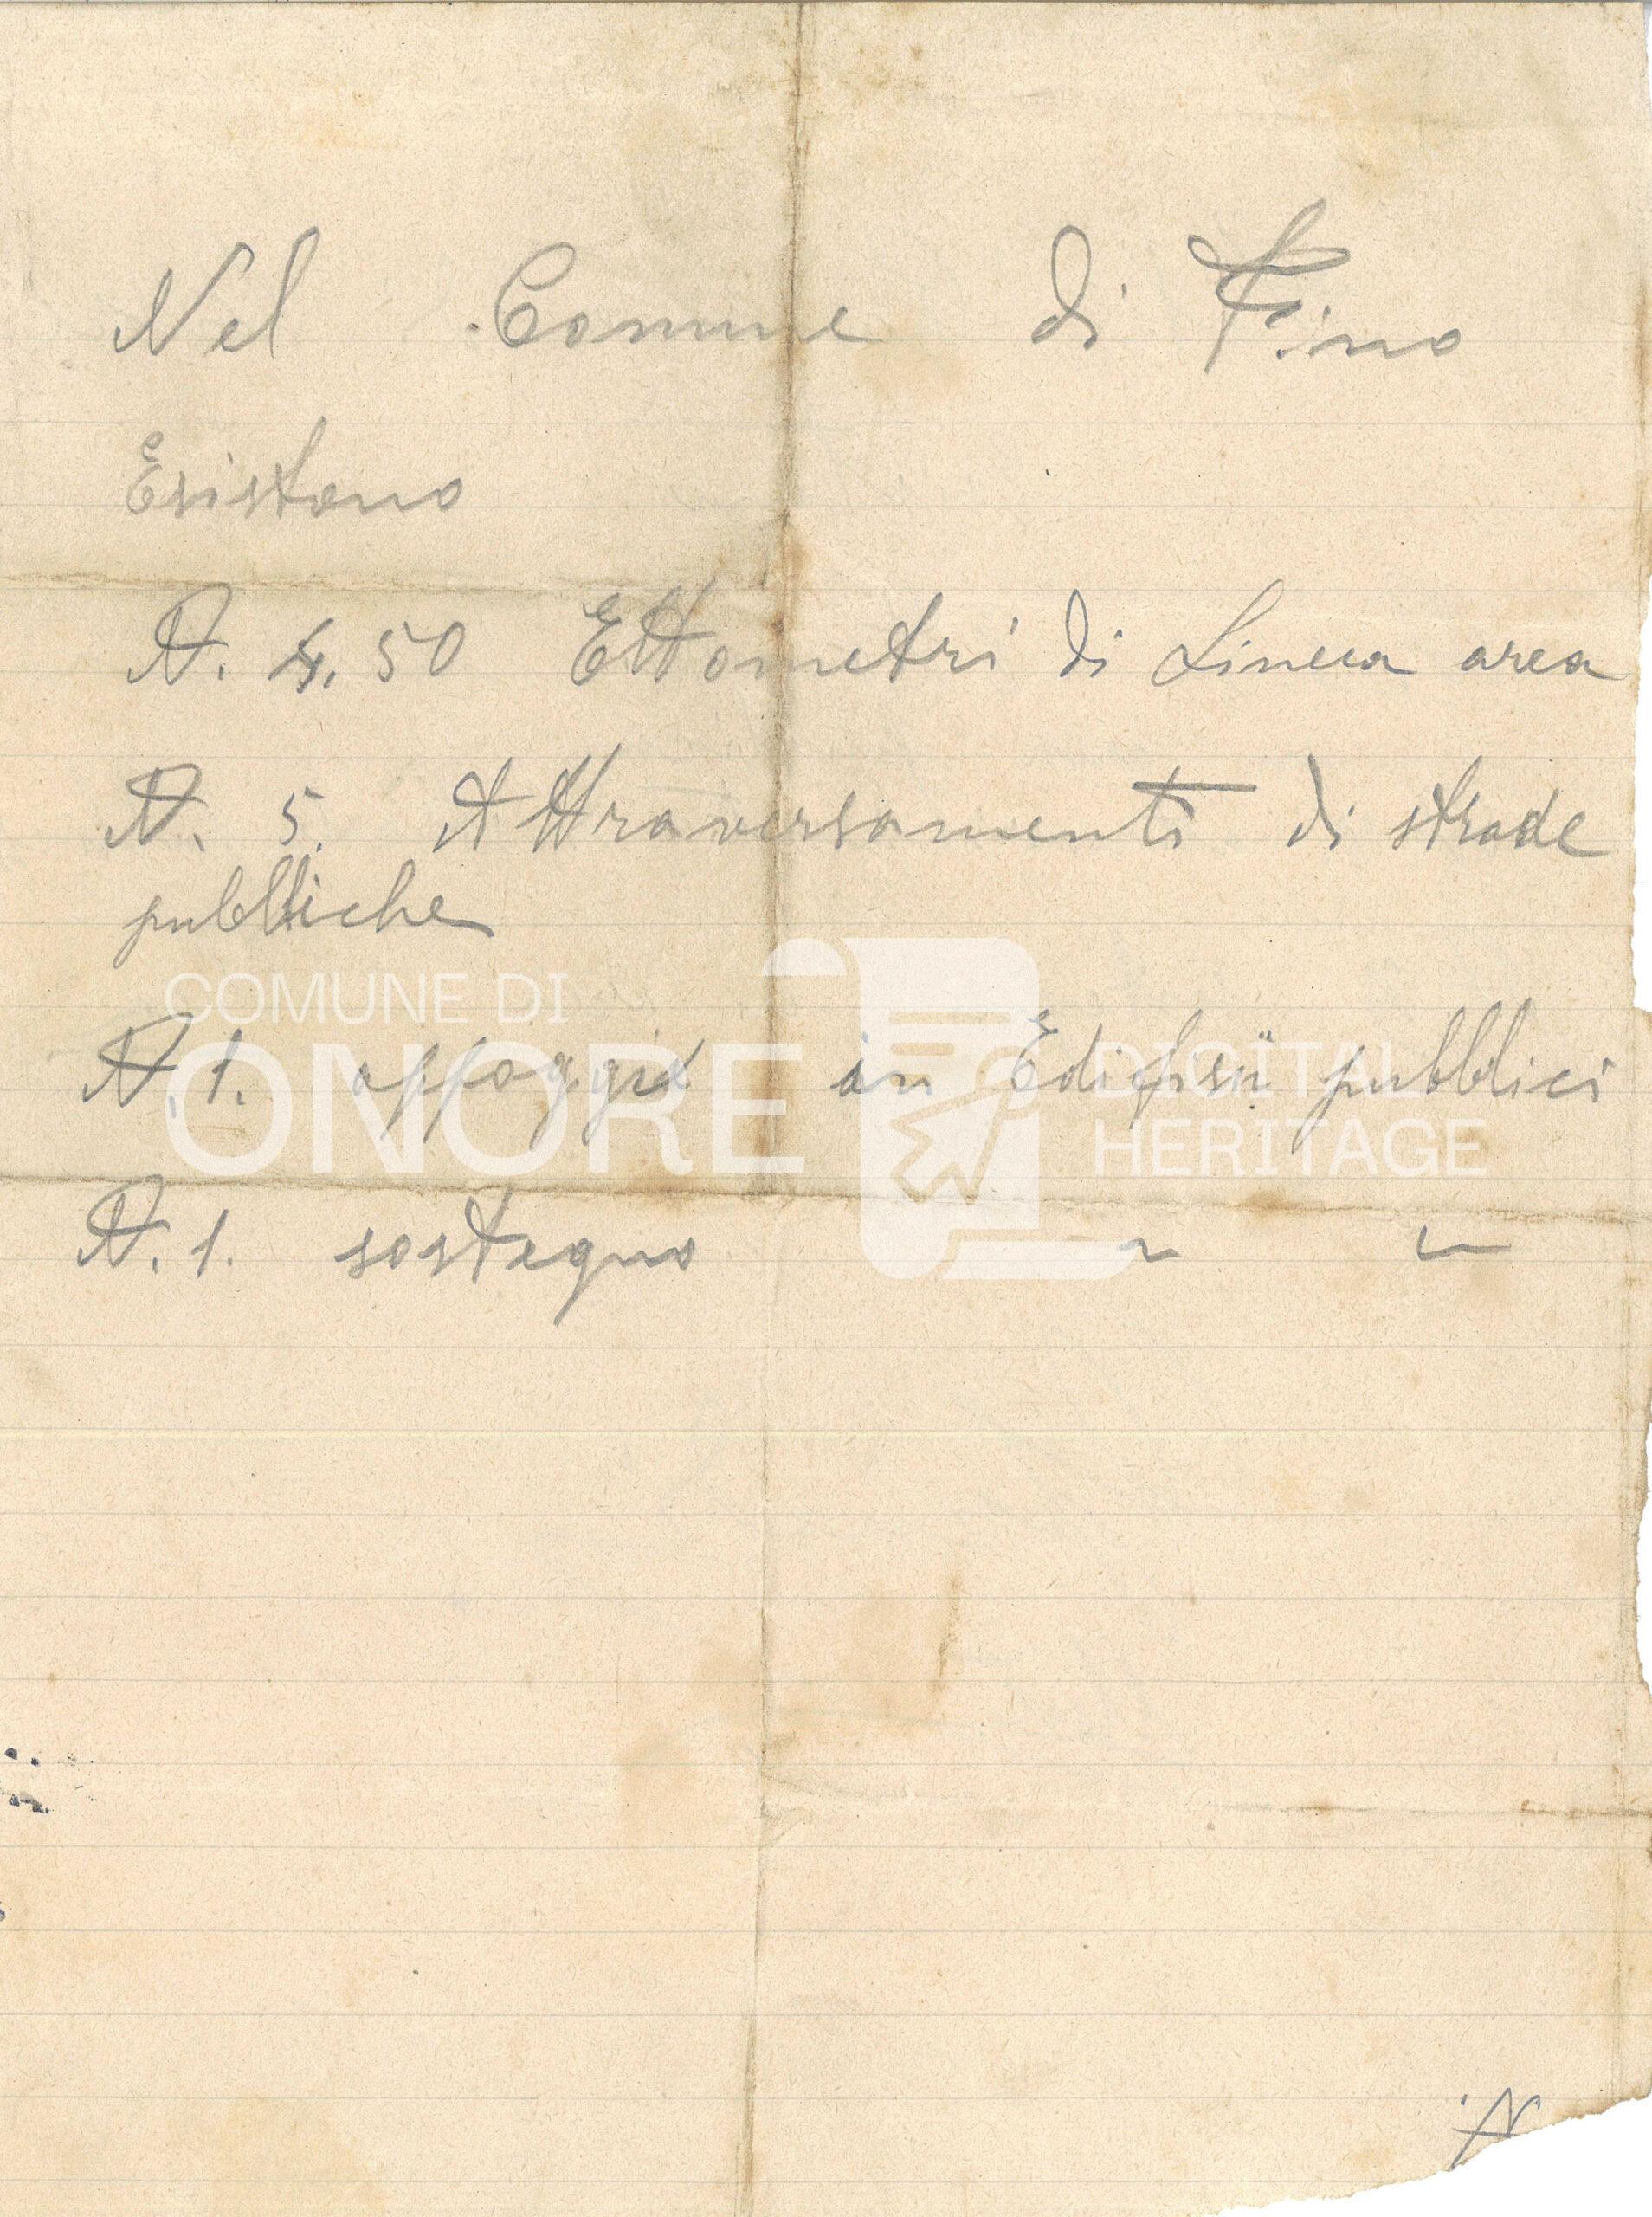 Nel Comune di Fino
Esistono
N. 4.50 Ettometri di Linea area
N. 5. Attraversamenti di strade
pubbliche
COMUNE DI
ONORE
DIGITAL
HERITAGE
N. 1. appoggio in Edifisii pubblici
N. 1. sostegno " "
N